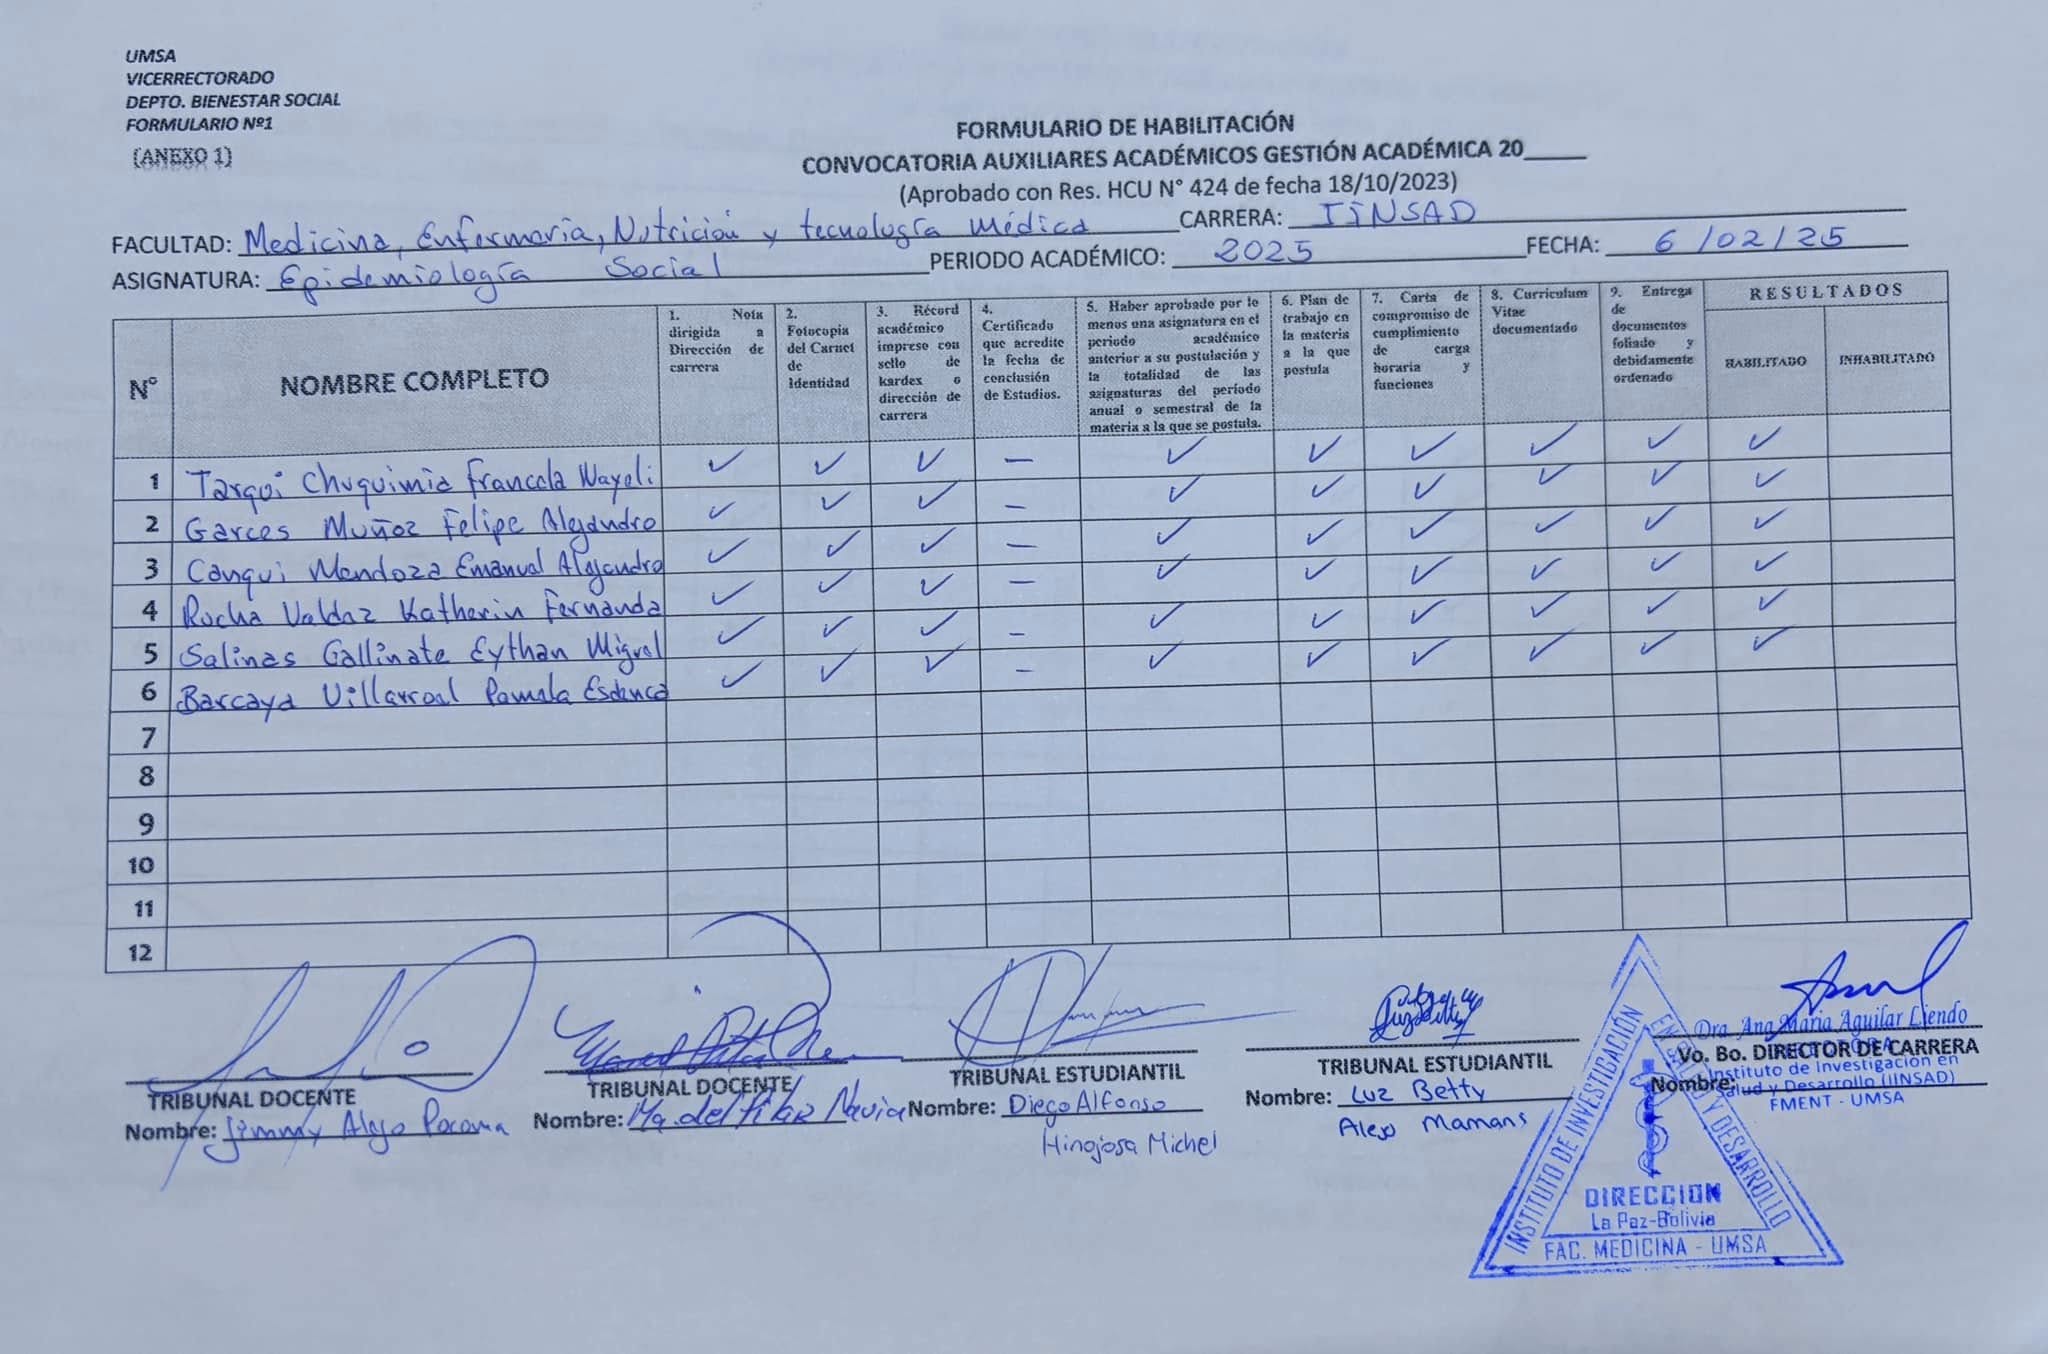 UMSA
VICERRECTORADO
DEPTO. BIENESTAR SOCIAL
FORMULARIO Nº1
(ANEXO 1)
FORMULARIO DE HABILITACIÓN
CONVOCATORIA AUXILIARES ACADÉMICOS GESTIÓN ACADÉMICA 20_____
(Aprobado con Res. HCU N° 424 de fecha 18/10/2023)
FACULTAD: Medicina, Enfermería, Nutrición y tecnología médica CARRERA: IINSAD
ASIGNATURA: Epidemiología Social PERIODO ACADÉMICO: 2025 FECHA: 6/02/25
N° NOMBRE COMPLETO
1. Nota dirigida a Dirección de carrera
2. Fotocopia del Carnet de Identidad
3. Récord académico impreso con sello de kardex o dirección de carrera
4. Certificado que acredite la fecha de conclusión de Estudios.
5. Haber aprobado por lo menos una asignatura en el periodo académico anterior a su postulación y la totalidad de las asignaturas del período anual o semestral de la materia a la que se postula.
6. Plan de trabajo en la materia a la que postula
7. Carta de compromiso de cumplimiento de carga horaria y funciones
8. Curriculum Vitae documentado
9. Entrega de documentos foliado y debidamente ordenado
RESULTADOS
HABILITADO INHABILITADO
1 Tarqui Chuquimia Francela Nayeli ✓ ✓ ✓ – ✓ ✓ ✓ ✓ ✓ ✓
2 Garces Muñoz Felipe Alejandro ✓ ✓ ✓ – ✓ ✓ ✓ ✓ ✓ ✓
3 Canqui Mendoza Emanuel Alejandro ✓ ✓ ✓ – ✓ ✓ ✓ ✓ ✓ ✓
4 Rocha Valdaz Katherin Fernanda ✓ ✓ ✓ – ✓ ✓ ✓ ✓ ✓ ✓
5 Salinas Gallinate Eythan Miguel ✓ ✓ ✓ – ✓ ✓ ✓ ✓ ✓ ✓
6 Barcaya Villarroel Pamela ✓ ✓ ✓ – ✓ ✓ ✓ ✓ ✓ ✓
7
8
9
10
11
12
TRIBUNAL DOCENTE
Nombre: Jimmy Alejo Pocoma
TRIBUNAL DOCENTE
Nombre: Ma. del Pilar Navia
TRIBUNAL ESTUDIANTIL
Nombre: Diego Alfonso
Hinojosa Michel
TRIBUNAL ESTUDIANTIL
Nombre: Luz Betty
Alejo Mamani
Dra. Ana Maria Aguilar Liendo
DIRECTORA
Vo. Bo. DIRECTOR DE CARRERA
Instituto de Investigación en
Nombre:
Salud y Desarrollo (IINSAD)
FMENT - UMSA
INSTITUTO DE INVESTIGACIÓN
EN SALUD Y DESARROLLO
DIRECCION
La Paz-Bolivia
FAC. MEDICINA - UMSA